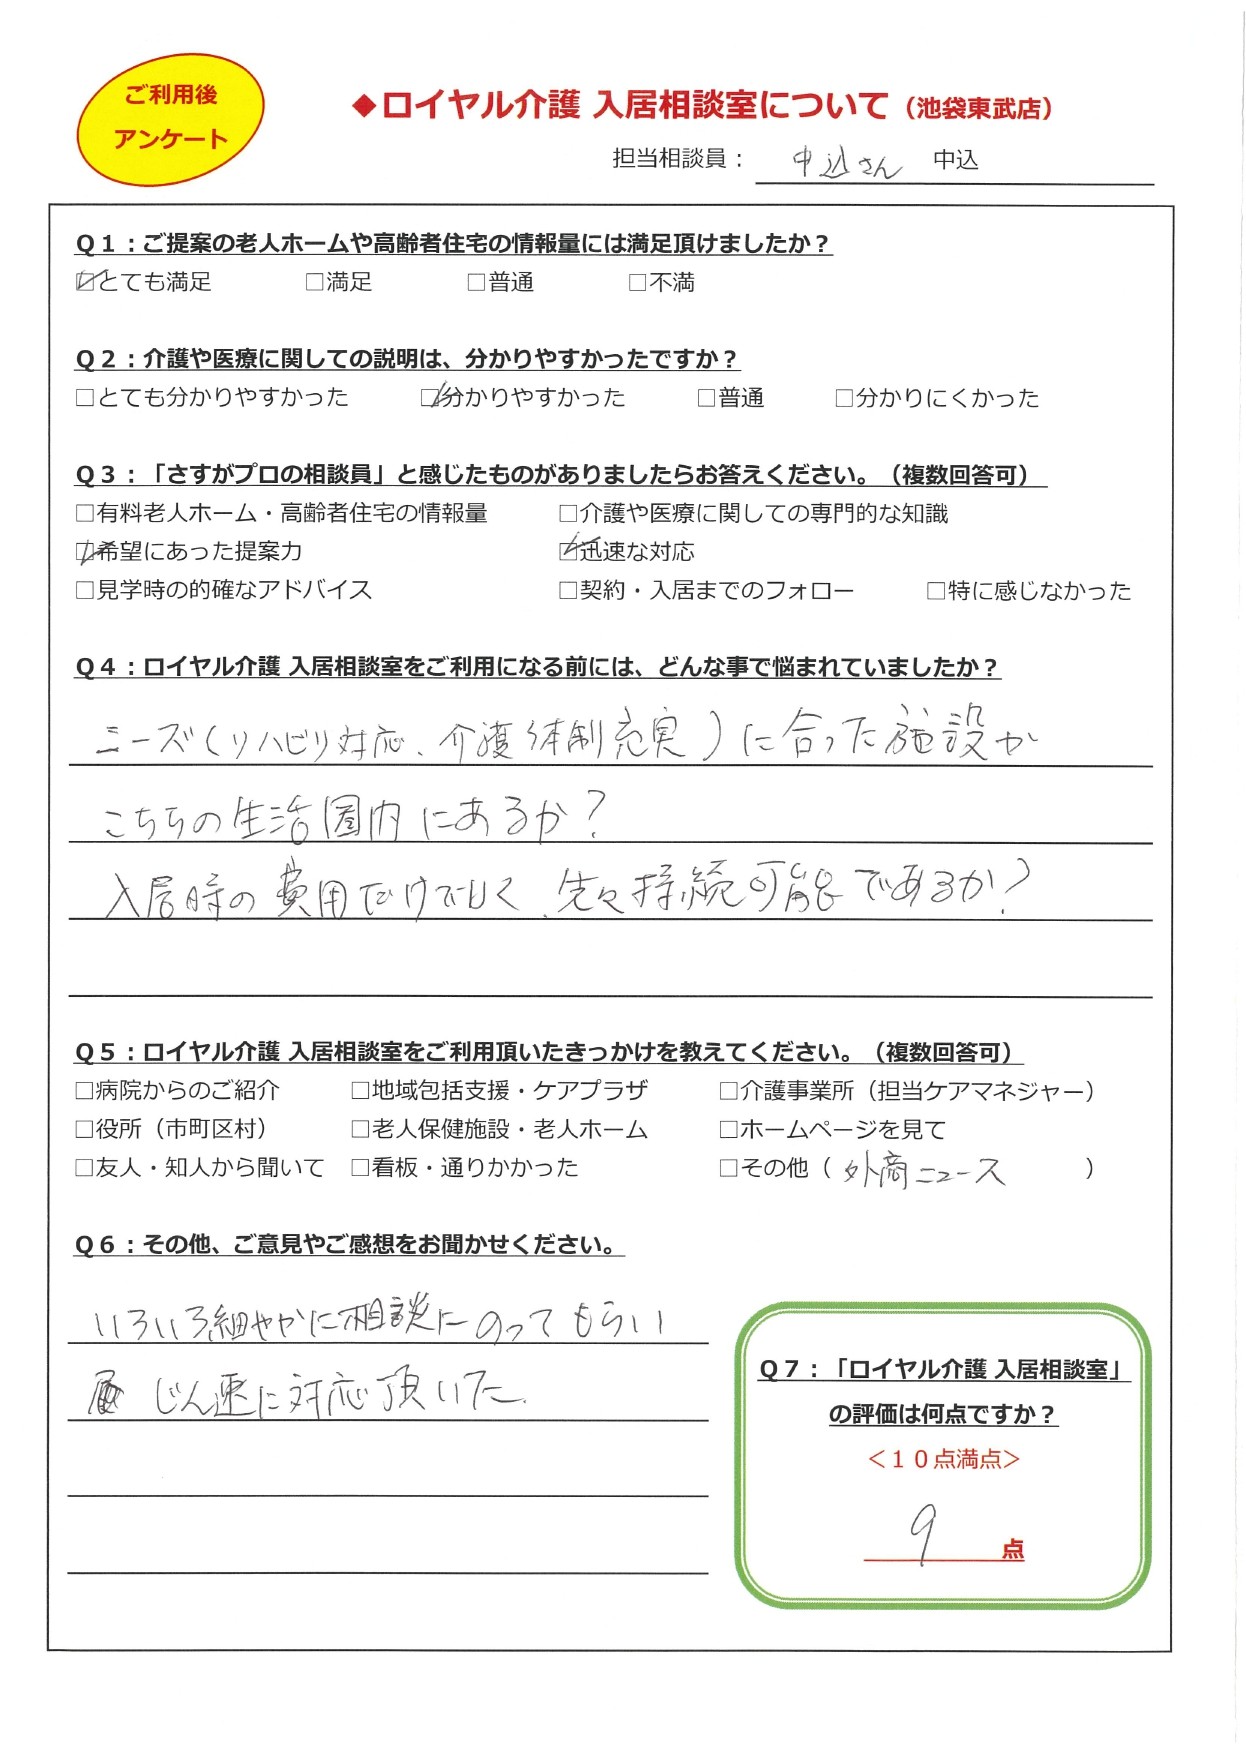 ご利用後
アンケート
◆ロイヤル介護 入居相談室について（池袋東武店）
担当相談員： 中込さん 中込
Ｑ１：ご提案の老人ホームや高齢者住宅の情報量には満足頂けましたか？
☑とても満足 □満足 □普通 □不満
Ｑ２：介護や医療に関しての説明は、分かりやすかったですか？
□とても分かりやすかった ☑分かりやすかった □普通 □分かりにくかった
Ｑ３：「さすがプロの相談員」と感じたものがありましたらお答えください。（複数回答可）
□有料老人ホーム・高齢者住宅の情報量 □介護や医療に関しての専門的な知識
☑希望にあった提案力 ☑迅速な対応
□見学時の的確なアドバイス □契約・入居までのフォロー □特に感じなかった
Ｑ４：ロイヤル介護 入居相談室をご利用になる前には、どんな事で悩まれていましたか？
ニーズ（リハビリ対応、介護体制充実）に合った施設が
こちらの生活圏内にあるか？
入居時の費用だけでなく、先々持続可能であるか？
Ｑ５：ロイヤル介護 入居相談室をご利用頂いたきっかけを教えてください。（複数回答可）
□病院からのご紹介 □地域包括支援・ケアプラザ □介護事業所（担当ケアマネジャー）
□役所（市町区村） □老人保健施設・老人ホーム □ホームページを見て
□友人・知人から聞いて □看板・通りかかった □その他（ 外商ニュース ）
Ｑ６：その他、ご意見やご感想をお聞かせください。
いろいろ細やかに相談にのってもらい
じん速に対応頂いた.
Ｑ７：「ロイヤル介護 入居相談室」
の評価は何点ですか？
＜１０点満点＞
9 点